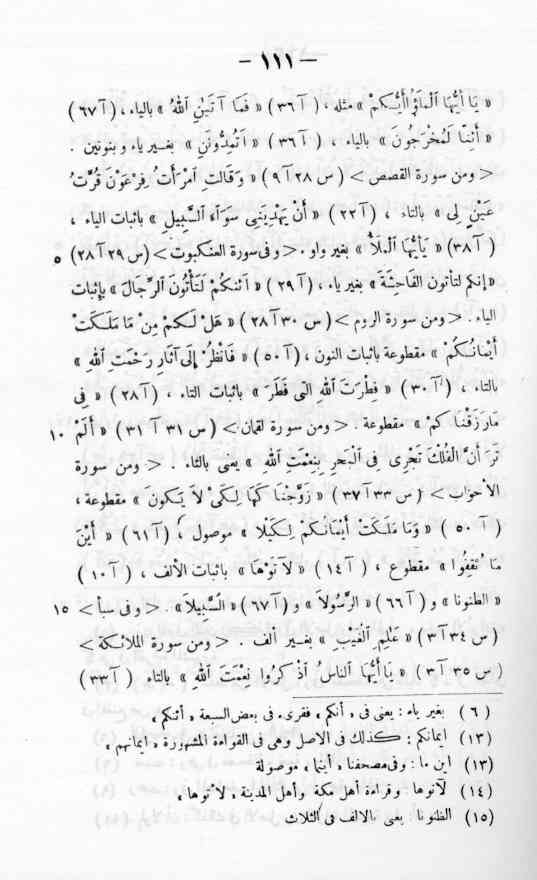 — ١١١ —
« يَا أَيُّهَا ٱلْمَلَؤُا أَيُّكُمْ » مثله ، ( آ ٣٦ ) « فَمَا آتَيٰنِ ٱللهُ » بالياء ، ( آ ٦٧ )
« أَئِنَّا لَمُخْرَجُونَ » بالياء ، ( آ ٣٦ ) « أَتُمِدُّونَنِ » بغير ياء وبنونين .
< ومن سورة القصص > ( س ٢٨ آ ٩ ) « وَقَالَتِ ٱمْرَأَتُ فِرْعَوْنَ قُرَّتُ
عَيْنٍ لِى » بالتاء ، ( آ ٢٢ ) « أَنْ يَهْدِيَنِى سَوَآءَ ٱلسَّبِيلِ » باثبات الياء ،
( آ ٣٨ ) « يَأَيُّهَا ٱلْمَلَأُ » بغير واو . < وفى سورة العنكبوت > ( س ٢٩ آ ٢٨ ) ٥
« إنكم لتأتون الفَاحِشَةَ » بغير ياء ، ( آ ٢٩ ) « أَئنكُمْ لَتَأْتُونَ ٱلرِّجَالَ » بإثبات
الياء . < ومن سورة الروم > ( س ٣٠ آ ٢٨ ) « هَلْ لَكُمْ مِنْ مَا مَلَكَتْ
أَيْمَانُكُمْ » مقطوعة باثبات النون ، ( آ ٥٠ ) « فَٱنْظُرْ إِلَى آثَارِ رَحْمَتِ ٱللهِ »
بالتاء ، ( آ ٣٠ ) « فِطْرَتَ ٱللهِ الَّتى فَطَرَ » باثبات التاء ، ( آ ٢٨ ) « فِى
مَا رَزَقْنَاكُمْ » مقطوعة . < ومن سورة لقمان > ( س ٣١ آ ٣١ ) « أَلَمْ ١٠
تَرَ أَنَّ ٱلْفُلْكَ تَجْرِى فِى ٱلْبَحْرِ بِنِعْمَتِ ٱللهِ » يعنى بالتاء . < ومن سورة
الأحزاب > ( س ٣٣ آ ٣٧ ) « زَوَّجْنَا كَهَا لِكَىْ لَا يَكُونَ » مقطوعة ،
( آ ٥٠ ) « وَمَا مَلَكَتْ أَيْمَانُكُمْ لِكَيْلَا » موصول ، ( آ ٦١ ) « أَيْنَ
مَا ثُقِفُوا » مقطوع ، ( آ ١٤ ) « لَآتَوْهَا » باثبات الألف ، ( آ ١٠ )
« الظنونا » و ( آ ٦٦ ) « الرَّسُولَا » و ( آ ٦٧ ) « ٱلسَّبِيلَا » . < وفى سبأ > ١٥
( س ٣٤ آ ٣ ) « عَلِمِ ٱلْغَيْبِ » بغير ألف . < ومن سورة الملائكة >
( س ٣٥ آ ٣ ) « يَا أَيُّهَا ٱلنَاسُ ٱذْكُرُوا نِعْمَتَ ٱللهِ » بالتاء ( آ ٣٣ )
( ٦ ) بغير ياء : يعنى فى « أنكم » فقرىء فى بعض السبعة « أئنكم »
( ١٣ ) ايمانكم : كذلك فى الاصل وهى فى القراءة المشهورة « ايمانهم »
( ١٣ ) اين ما : وفى مصحفنا « أينما » موصولة
( ١٤ ) لآتوها : وقراءة أهل مكة وأهل المدينة « لأتوها »
( ١٥ ) الظنونا : يعنى بالالف فى الثلاث